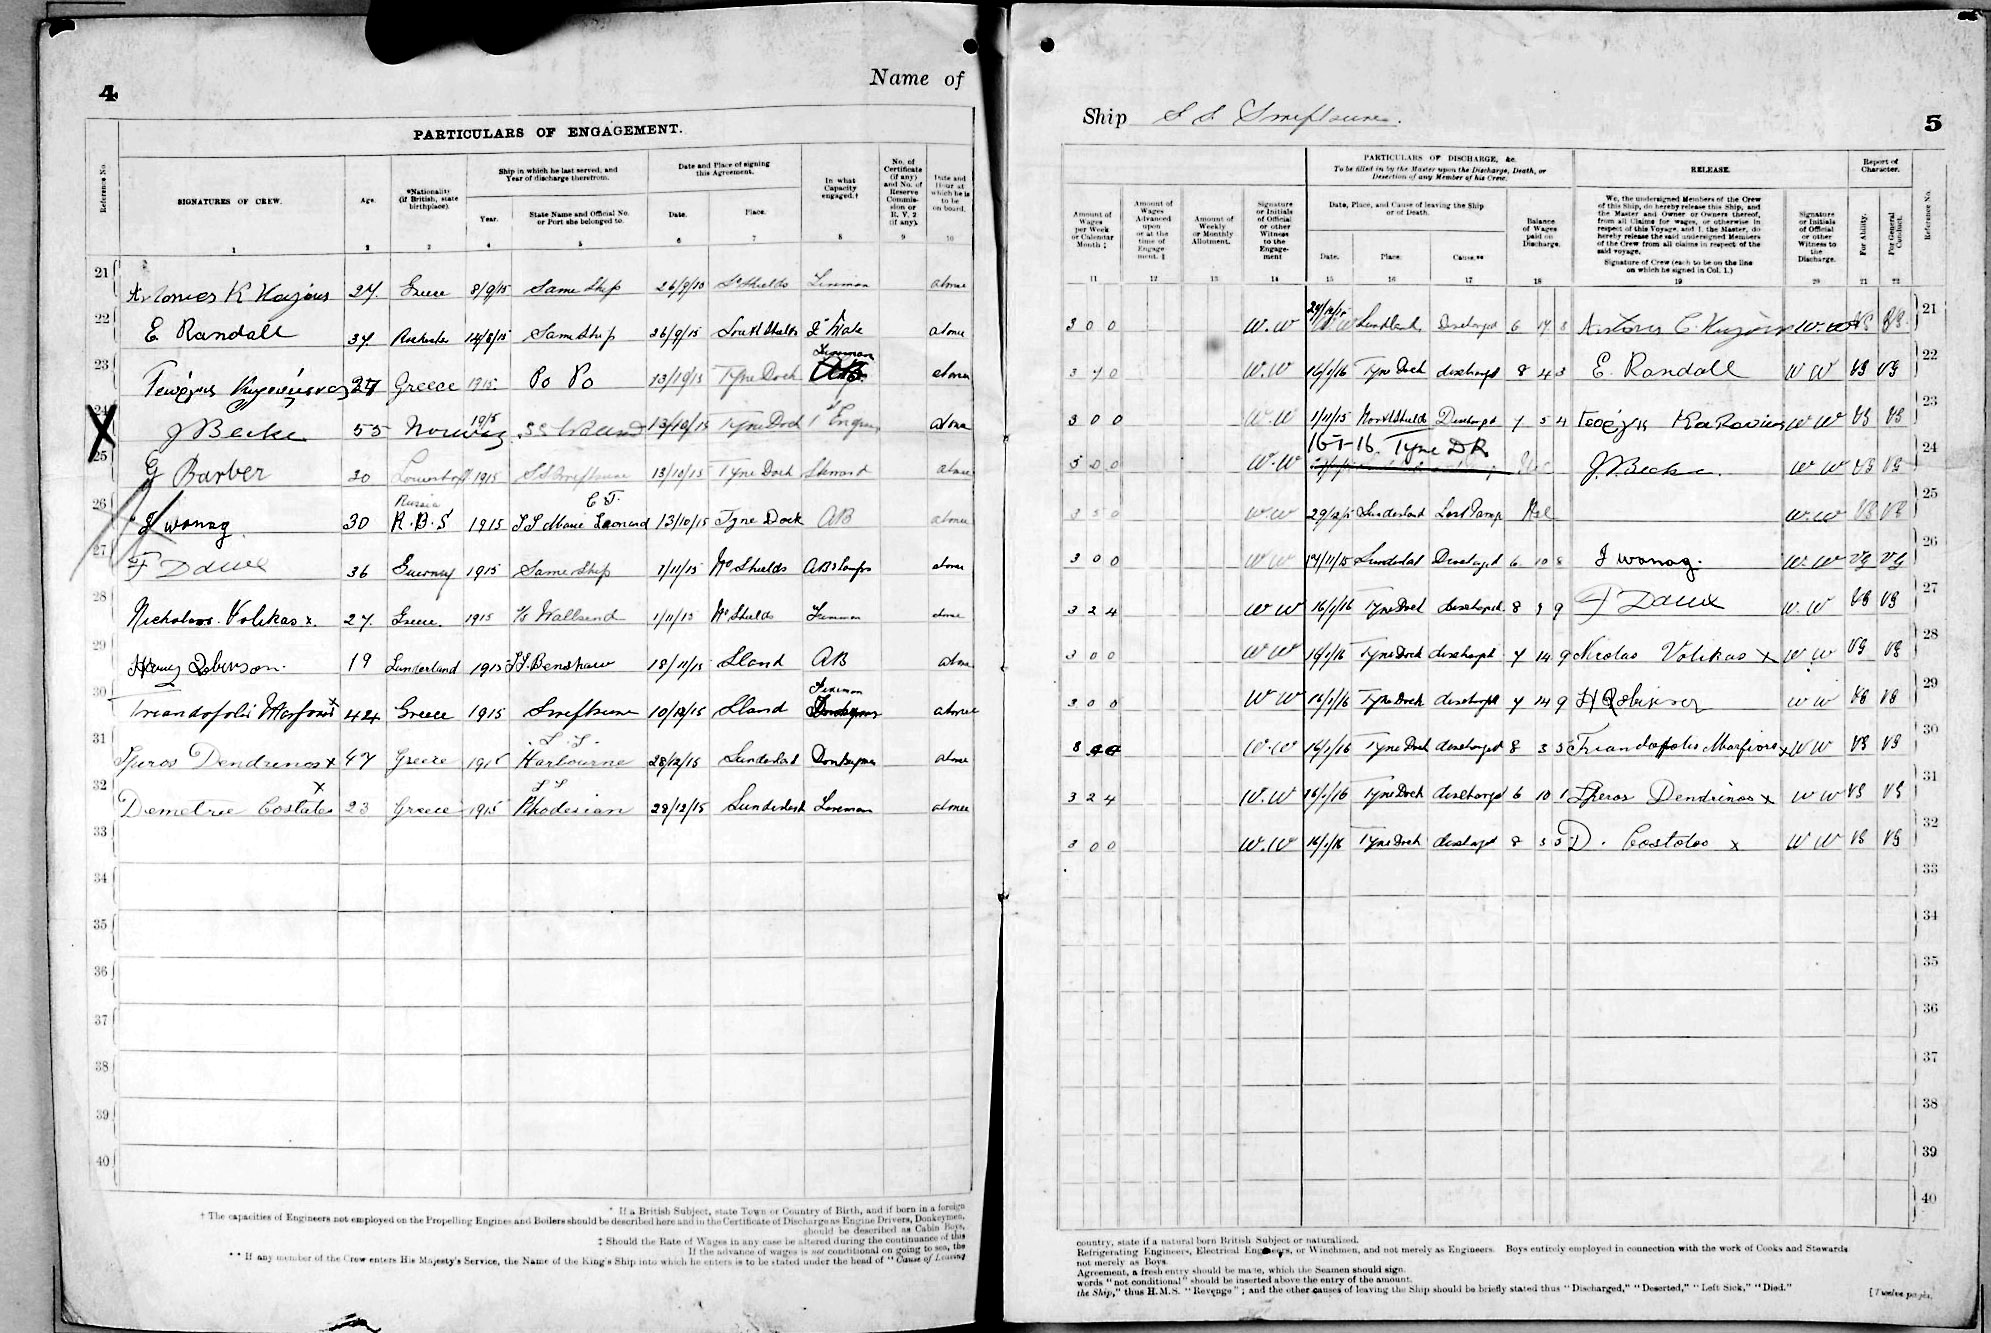 4
Name of
PARTICULARS OF ENGAGEMENT.
Reference No.
SIGNATURES OF CREW.
Age.
*Nationality (if British, state birthplace).
Ship in which he last served, and Year of discharge therefrom.
Year.
State Name and Official No. or Port she belonged to.
Date and Place of signing this Agreement.
Date.
Place.
In what Capacity engaged.†
No. of Certificate (if any) and No. of Reserve Commission or R. V. 2 (if any).
Date and Hour at which he is to be on board.
1 2 3 4 5 6 7 8 9 10
21 K 27 Greece 8/9/15 Same Ship 26/9/15 St Shields Fireman above
22 E Randall 37 Rochester 14/8/15 Same Ship 26/9/15 South Shields 2nd Mate above
Fireman
23 Γεώργις 27 Greece 1915 Po Po 13/10/15 Tyne Dock above
24 X J Becke 55 Norway 1915 SS 13/10/15 Tyne Dock 1st Engineer above
25 G Barber 30 Lowestoft 1915 SS Swiftsure 13/10/15 Tyne Dock Steward above
Russia
26 J wonag. 30 R.B.S 1915 SS Marie Leonard 13/10/15 Tyne Dock AB above
27 F Daux 36 Guernsey 1915 Same Ship 1/11/15 No Shields AB & Lamps above
28 Nicholaos Volikas x. 27. Greece. 1915 S/S Wallsend 1/11/15 No Shields Fireman above
29 Harry Robinson. 19 Sunderland 1915 SS Benshaw 18/11/15 Sland AB above
Fireman
30 Triandafolis Marfiores x 44 Greece 1915 Swiftsure 10/12/15 Sland above
S.S.
31 Speros Dendrinos x 47 Greece 1915 Harbourne 28/12/15 Sunderland Donkeyman above
x SS
32 Demetrie Costatos 23 Greece 1915 Rhodesian 28/12/15 Sunderland Fireman above
33
34
35
36
37
38
39
40
* If a British Subject, state Town or Country of Birth, and if born in a foreign
† The capacities of Engineers not employed on the Propelling Engines and Boilers should be described here and in the Certificate of Discharge as Engine Drivers, Donkeymen,
should be described as Cabin Boys,
‡ Should the Rate of Wages in any case be altered during the continuance of this
If the advance of wages is not conditional on going to sea, the
** If any member of the Crew enters His Majesty's Service, the Name of the King's Ship into which he enters is to be stated under the head of "Cause of Leaving
Ship S S Swiftsure.
5
Amount of Wages per Week or Calendar Month ‡
Amount of Wages Advanced upon or at the time of Engagement. ‡
Amount of Weekly or Monthly Allotment.
Signature or Initials of Official or other Witness to the Engagement
PARTICULARS OF DISCHARGE, &c.
To be filled in by the Master upon the Discharge, Death, or Desertion of any Member of his Crew.
Date, Place, and Cause of leaving the Ship or of Death.
Date.
Place.
Cause.**
Balance of Wages paid on Discharge.
RELEASE.
We, the undersigned Members of the Crew of this Ship, do hereby release this Ship, and the Master and Owner or Owners thereof, from all Claims for wages, or otherwise in respect of this Voyage, and I, the Master, do hereby release the said undersigned Members of the Crew from all claims in respect of the said voyage.
Signature of Crew (each to be on the line on which he signed in Col. 1.)
Signature or Initials of Official or other Witness to the Discharge.
Report of Character.
For Ability.
For General Conduct.
Reference No.
11 12 13 14 15 16 17 18 19 20 21 22
3 0 0 W.W Discharged 6 17 W.W VG VG 21
W.W 16/1/16 Tyne Dock discharged 8 4 3 E. Randall W W VG VG 22
3 0 0 W.W 1/11/15 North Shields Discharged 7 5 4 Γεώργις W W VG VG 23
16-1-16. Tyne DK
5 0 0 W.W J. Becke. W W VG VG 24
3 5 0 W W 29/12/15 Sunderland Nil W.W VG VG 25
3 0 0 W W 17/11/15 Sunderland Discharged 6 10 8 J wonag. W.W VG VG 26
3 2 4 W W 16/1/16 Tyne Dock discharged 8 9 F Daux W.W VG VG 27
3 0 0 W W 16/1/16 Tyne Dock discharged 7 14 9 Nicolas Volikas x W W VG VG 28
3 0 0 W W 16/1/16 Tyne Dock discharged 7 14 9 H Robinson W W VG VG 29
W.W 16/1/16 Tyne Dock discharged 8 3 5 Triandafolis Marfiores x W W VG VG 30
3 2 4 W.W 16/1/16 Tyne Dock discharged 6 10 1 Speros Dendrinos x W W VG VG 31
3 0 0 W.W 16/1/16 Tyne Dock discharged 8 3 5 D. Costatos x W W VG VG 32
33
34
35
36
37
38
39
40
country, state if a natural born British Subject or naturalized.
Refrigerating Engineers, Electrical Engineers, or Winchmen, and not merely as Engineers. Boys entirely employed in connection with the work of Cooks and Stewards
not merely as Boys.
Agreement, a fresh entry should be made, which the Seamen should sign.
words "not conditional" should be inserted above the entry of the amount.
the Ship," thus H.M.S. "Revenge"; and the other causes of leaving the Ship should be briefly stated thus "Discharged," "Deserted," "Left Sick," "Died."
[Twelve pages.